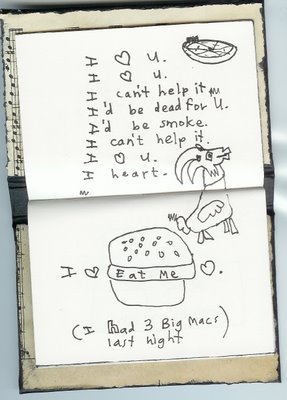 I ♡ U.
I ♡ U.
I can't help it
I'd be dead for U.
I'd be smoke.
I can't help it.
I ♡ U.
I heart.
I ♡ Eat Me ♡.
(I had 3 Big Macs
last night)